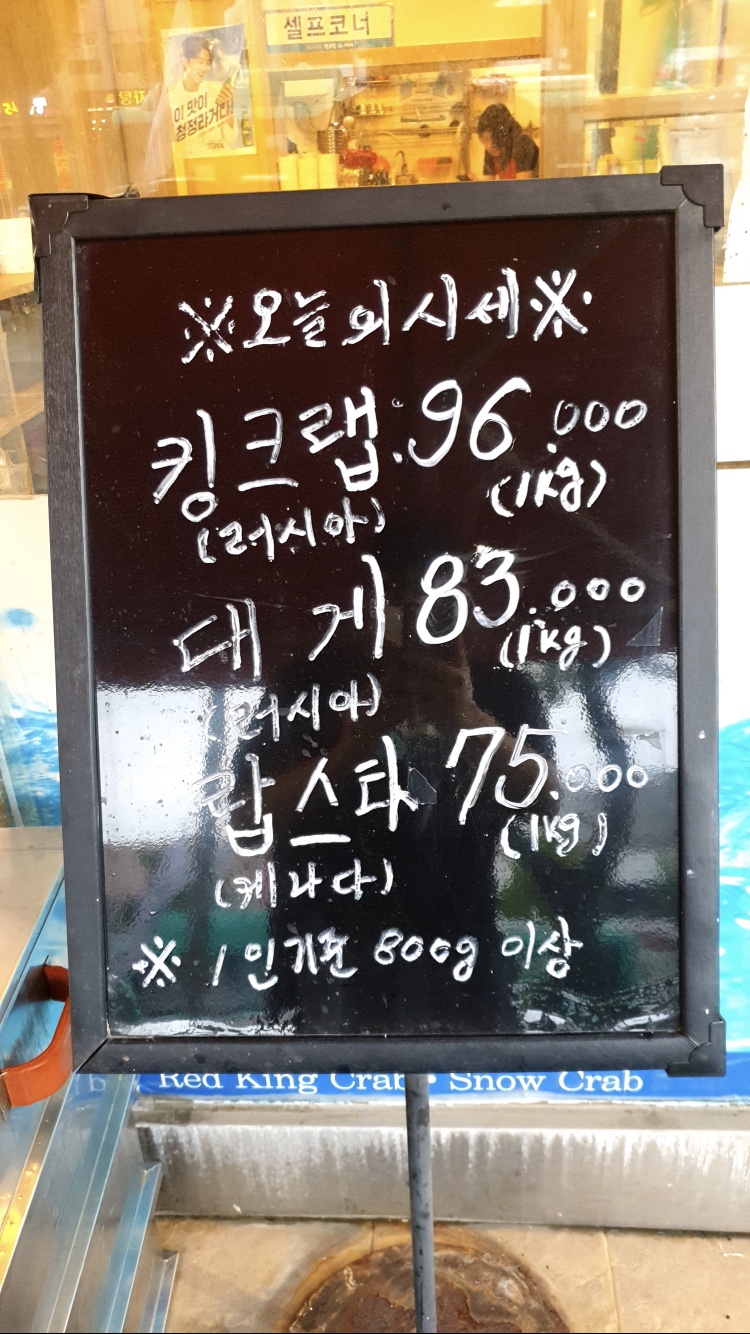 셀프코너
이 맛이
청정라거다!
TERRA
※오늘의시세※
킹크랩.96.000
(러시아) (1kg)
대 게 83.000
(1kg)
(러시아)
랍스타 75.000
(1kg)
(케나다)
※ 1인기준 800g 이상
Red King Crab • Snow Crab